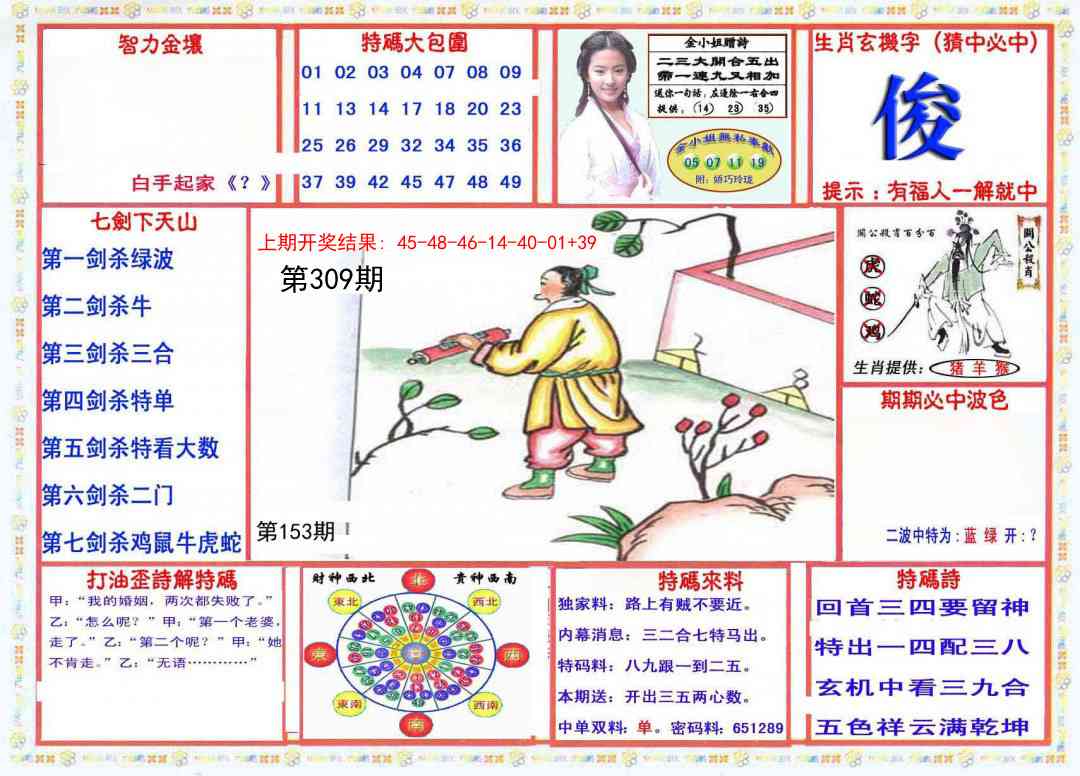 智力金壤
白手起家《？》
特碼大包圍
01 02 03 04 07 08 09
11 13 14 17 18 20 23
25 26 29 32 34 35 36
37 39 42 45 47 48 49
金小姐贈詩
二三大開合五出
第一連九又相加
送你一句話，左邊除一右合四
提供：（14） 23 35）
金小姐無私奉獻
05 07 11 19
附：娇巧玲珑
生肖玄機字（猜中必中）
俊
提示：有福人一解就中
七劍下天山
第一剑杀绿波
第二剑杀牛
第三剑杀三合
第四剑杀特单
第五剑杀特看大数
第六剑杀二门
第七剑杀鸡鼠牛虎蛇
上期开奖结果：45-48-46-14-40-01+39
第309期
第153期
關公殺肖百分百
關公殺肖
虎
蛇
鸡
生肖提供：猪 羊 猴
期期必中波色
二波中特为：蓝 绿 开：？
打油歪詩解特碼
甲：“我的婚姻，两次都失败了。”
乙：“怎么呢？”甲：“第一个老婆，
走了。”乙：“第二个呢？”甲：“她
不肯走。”乙：“无语…………”
財神西北
貴神西南
北
東北
西北
東
西
東南
西南
南
特碼來料
独家料：路上有贼不要近。
内幕消息：三二合七特马出。
特码料：八九跟一到二五。
本期送：开出三五两心数。
中单双料：单。密码料：651289
特碼詩
回首三四要留神
特出一四配三八
玄机中看三九合
五色祥云满乾坤